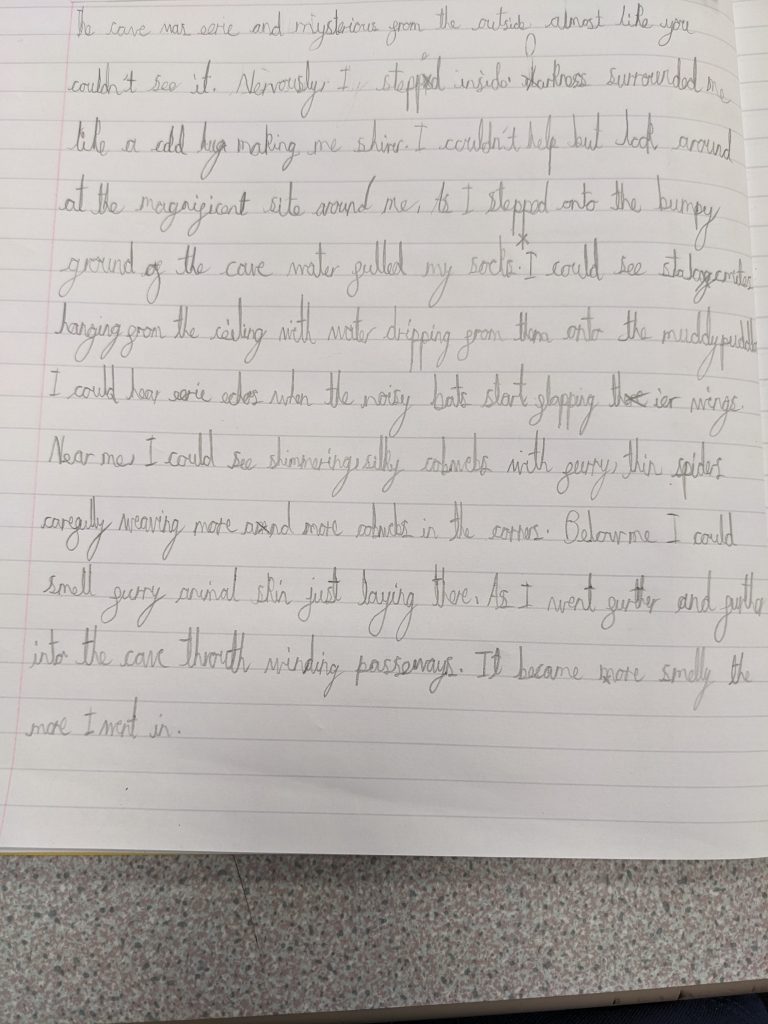 The cave was eerie and mysterious from the outside almost like you
couldn't see it. Nervously, I stepped inside. darkness surrounded me
like a cold hug making me shiver. I couldn't help but look around
at the magnificent site around me. As I stepped onto the bumpy
ground of the cave water filled my socks. I could see stalagemites
hanging from the ceiling with water dripping from them onto the muddy puddle
I could hear eerie echos when the noisy bats start flapping their wings.
Near me, I could see shimmering, silky cobwebs with furry, thin spiders
carefully weaving more and more cobwebs in the corners. Below me I could
smell furry animal skin just laying there. As I went further and further
into the cave throuth winding passeways. It became more smelly the
more I went in.